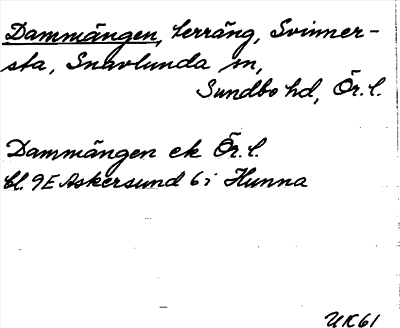 Dammängen, terräng, Svinner-
sta, Snavlunda sn,
Sundbo hd, Ör. l.
Dammängen ek Ör. l.
bl. 9E Askersund 6i Hunna
UK61